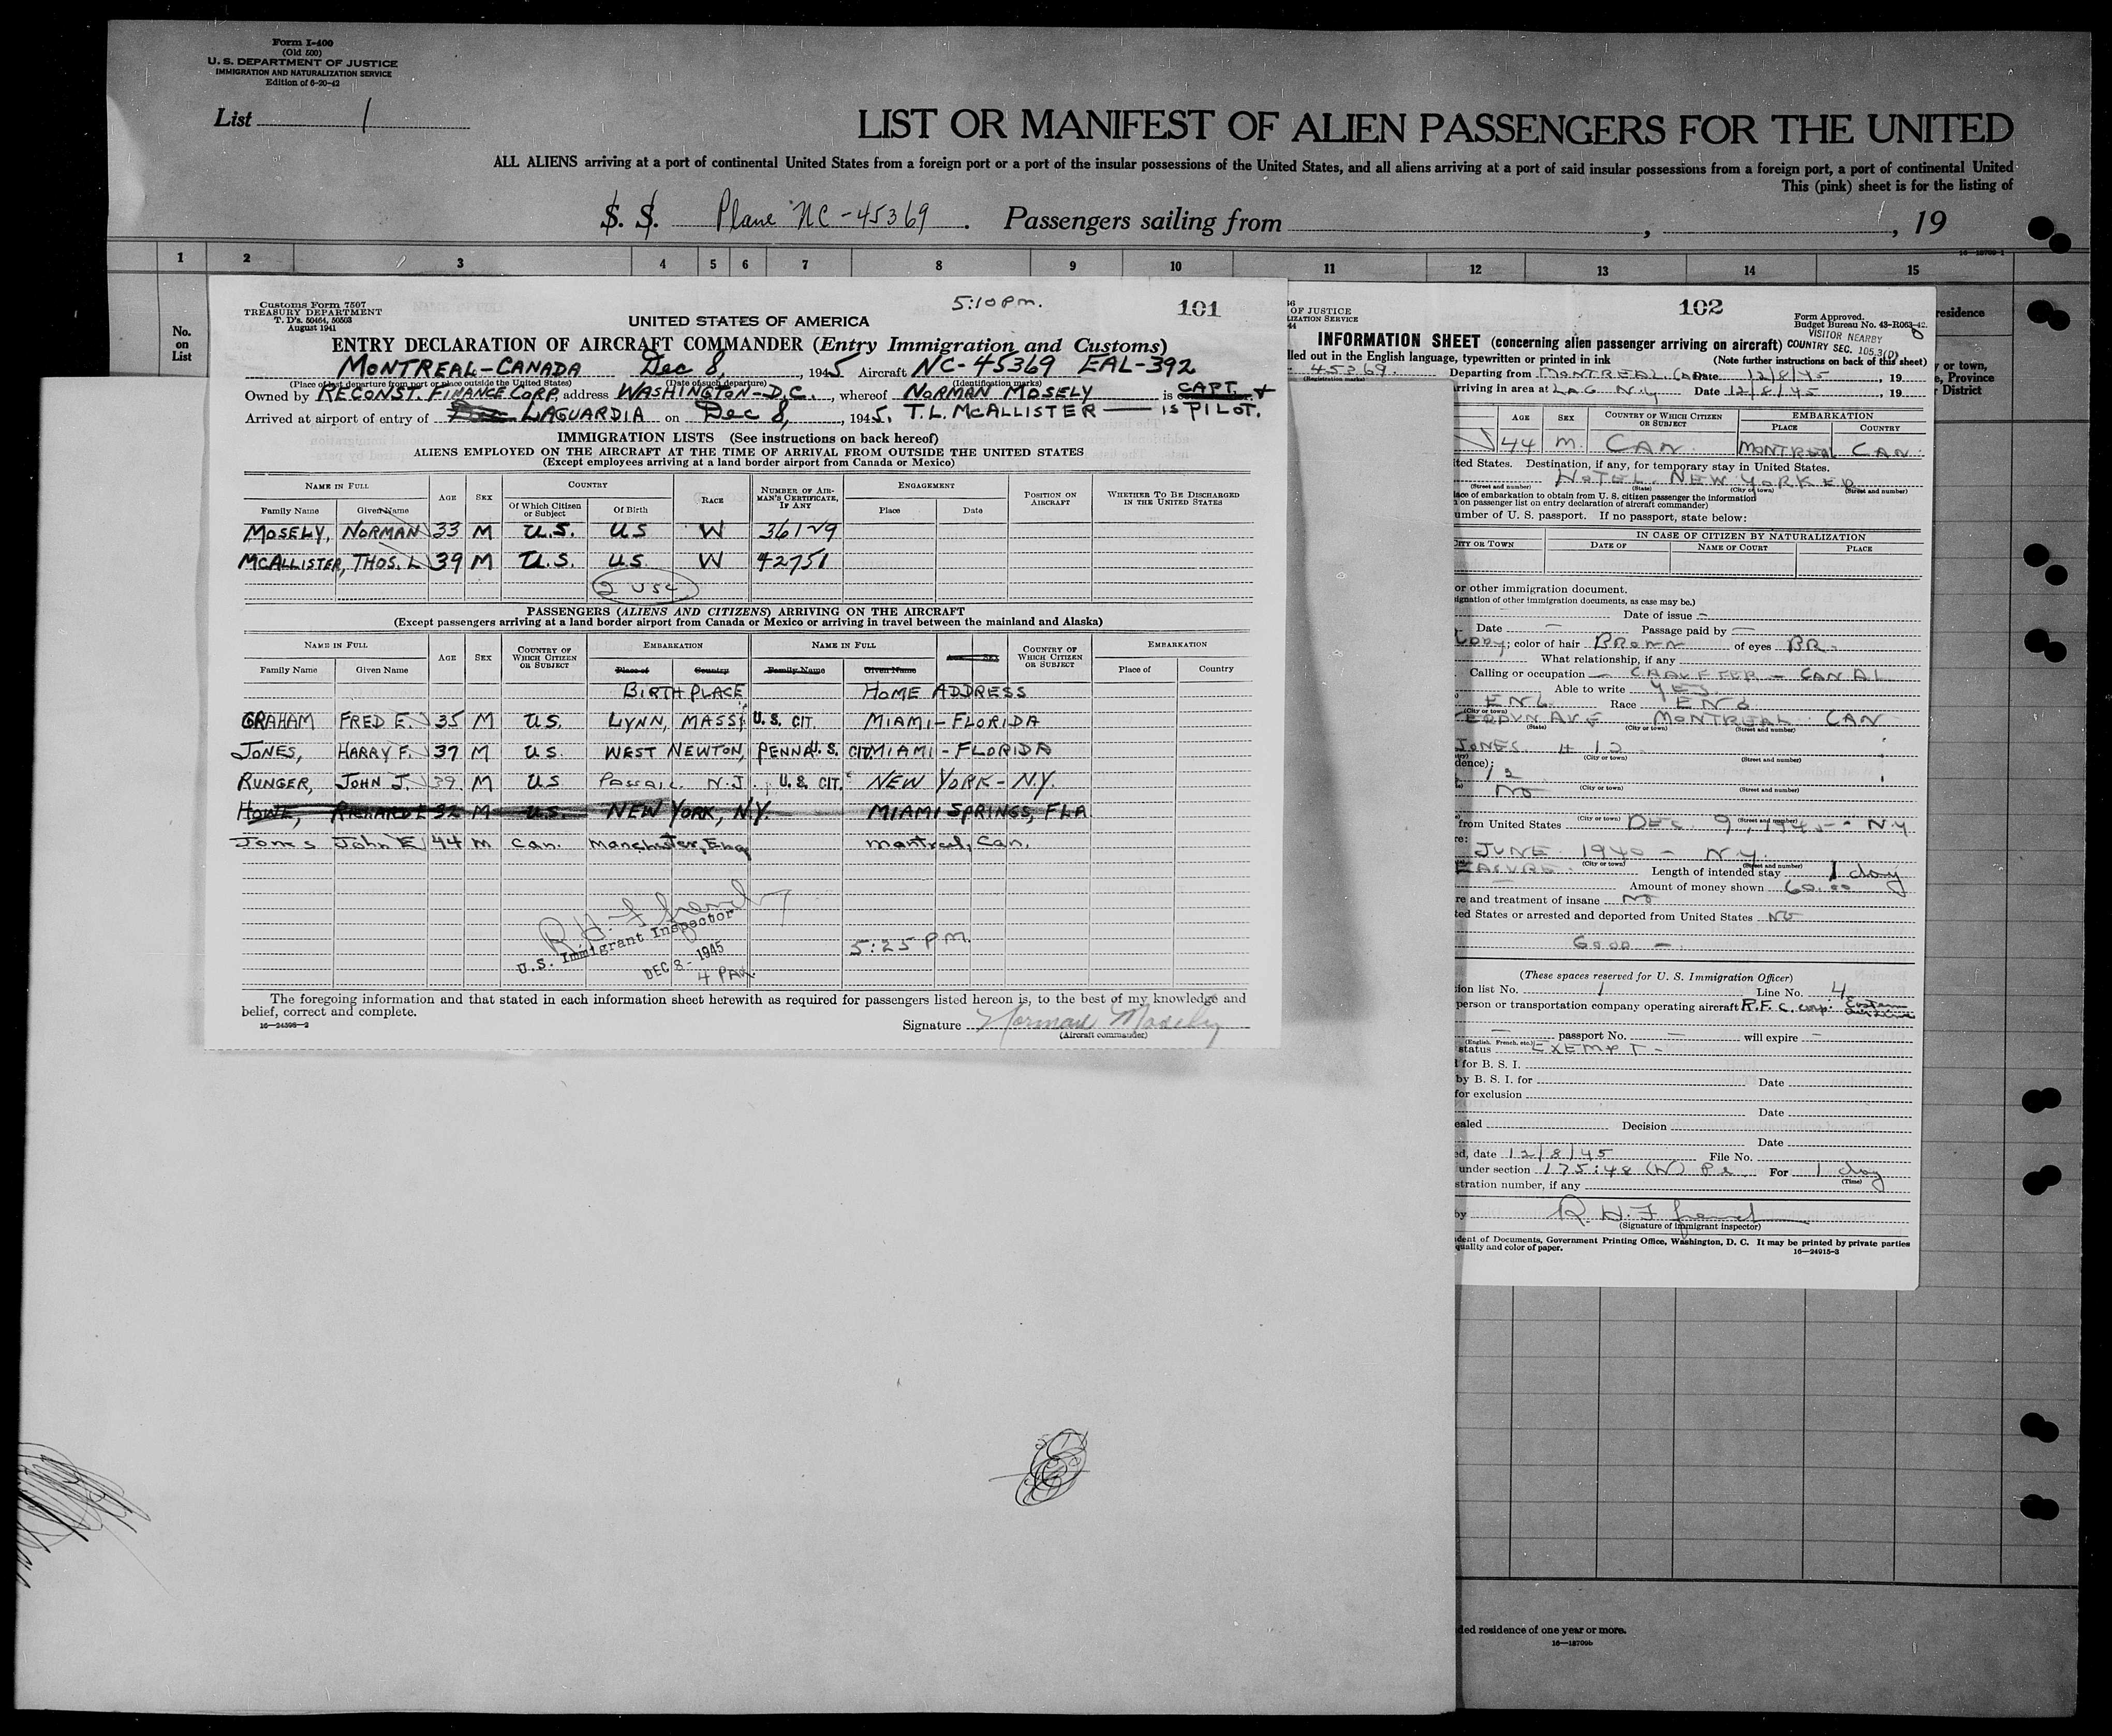 Form I-400
(Old 500)
U. S. DEPARTMENT OF JUSTICE
IMMIGRATION AND NATURALIZATION SERVICE
Edition of 6-20-42
List 1
LIST OR MANIFEST OF ALIEN PASSENGERS FOR THE UNITED
ALL ALIENS arriving at a port of continental United States from a foreign port or a port of the insular possessions of the United States, and all aliens arriving at a port of said insular possessions from a foreign port, a port of continental United
This (pink) sheet is for the listing of
S. S. Plane NC-45369. Passengers sailing from , , 19
1 2 3 4 5 6 7 8 9 10 11 12 13 14 15
No.
on
List
residence
y or town,
e, Province
District
Customs Form 7507
TREASURY DEPARTMENT
T. D's. 50464, 50503
August 1941
5:10 Pm.
101
UNITED STATES OF AMERICA
ENTRY DECLARATION OF AIRCRAFT COMMANDER (Entry Immigration and Customs)
MONTREAL-CANADA Dec 8, , 1945 Aircraft NC-45369 EAL-392
(Place of last departure from port or place outside the United States) (Date of such departure) (Identification marks)
Owned by RECONST. FINANCE CORP, address WASHINGTON-D.C., whereof NORMAN MOSELY is CAPT. &
Arrived at airport of entry of LAGUARDIA on Dec 8, , 1945. T.L. MCALLISTER — IS PILOT.
IMMIGRATION LISTS (See instructions on back hereof)
ALIENS EMPLOYED ON THE AIRCRAFT AT THE TIME OF ARRIVAL FROM OUTSIDE THE UNITED STATES
(Except employees arriving at a land border airport from Canada or Mexico)
NAME IN FULL AGE SEX COUNTRY RACE NUMBER OF AIRMAN'S CERTIFICATE, IF ANY ENGAGEMENT POSITION ON AIRCRAFT WHETHER TO BE DISCHARGED IN THE UNITED STATES
Family Name Given Name Of Which Citizen or Subject Of Birth Place Date
MOSELY, NORMAN 33 M U.S. US W 36129
MCALLISTER, THOS. L 39 M U.S. U.S. W 42751
2 USC
PASSENGERS (ALIENS AND CITIZENS) ARRIVING ON THE AIRCRAFT
(Except passengers arriving at a land border airport from Canada or Mexico or arriving in travel between the mainland and Alaska)
NAME IN FULL AGE SEX COUNTRY OF WHICH CITIZEN OR SUBJECT EMBARKATION NAME IN FULL SEX COUNTRY OF WHICH CITIZEN OR SUBJECT EMBARKATION
Family Name Given Name Place of Country Family Name Given Name Place of Country
BIRTH PLACE HOME ADDRESS
GRAHAM FRED E. 35 M U.S. LYNN, MASS. U.S. CIT. MIAMI-FLORIDA
JONES, HARRY F. 37 M U.S. WEST NEWTON, PENNA U.S. CIT. MIAMI-FLORIDA
RUNGER, JOHN J. 39 M U.S Passaic N.J. U.S. CIT. NEW YORK-N.Y.
HOWE, RICHARD E 32 M U.S. NEW YORK, N.Y. MIAMI SPRINGS, FLA
Jones John E 44 M Can. Manchester, Eng Montreal, Can.
R.H.F.
U.S. Immigrant Inspector
DEC 8 - 1945
4 PAX.
5:25 PM.
The foregoing information and that stated in each information sheet herewith as required for passengers listed hereon is, to the best of my knowledge and
belief, correct and complete.
16—24598-2
Signature Norman Mosely
(Aircraft commander)
OF JUSTICE
LIZATION SERVICE
44
102
Form Approved.
Budget Bureau No. 43-R063-42.
VISITOR NEARBY
COUNTRY SEC. 105.3(D)
INFORMATION SHEET (concerning alien passenger arriving on aircraft)
lled out in the English language, typewritten or printed in ink (Note further instructions on back of this sheet)
45369. Departing from MONTREAL CAN Date 12/8/45, 19
(Registration marks)
arriving in area at LaG N.Y Date 12/8/45, 19
AGE SEX COUNTRY OF WHICH CITIZEN OR SUBJECT EMBARKATION
PLACE COUNTRY
44 M. CAN. MONTREAL CAN.
ited States. Destination, if any, for temporary stay in United States.
HOTEL NEW YORKER
(Street and number) (State) (City or town) (Street and number)
lace of embarkation to obtain from U. S. citizen passenger the information
on passenger list on entry declaration of aircraft commander)
umber of U. S. passport. If no passport, state below:
CITY OR TOWN IN CASE OF CITIZEN BY NATURALIZATION
DATE OF NAME OF COURT PLACE
or other immigration document.
ignation of other immigration documents, as case may be.)
Date of issue —
Date — Passage paid by —
; color of hair BROWN of eyes BR.
What relationship, if any
Calling or occupation — CANAL
Able to write YES
ENG. Race ENG
(City or town)
AVE MONTREAL CAN
(State) (City or town) (Street and number)
JONES 412
(City or town) (Street and number)
dence):
12
No
(City or town) (Street and number)
from United States DEC 9, 1945 - N.Y
(City or town) (Street and number)
re:
JUNE 1940 - N.Y.
(City or town) (Street and number)
Length of intended stay 1 day
Amount of money shown 60.00
re and treatment of insane NO
ted States or arrested and deported from United States NO
GOOD —
(These spaces reserved for U. S. Immigration Officer)
ion list No. 1 Line No. 4
person or transportation company operating aircraft R.F.C. corp. Eastern Airline
— passport No. — will expire —
(English, French, etc.)
status EXEMPT -
for B. S. I.
by B. S. I. for Date
for exclusion
Date
ealed Decision
Date
ed, date 12/8/45 File No.
under section 175:48 (W) For 1 day
(Time)
stration number, if any
by R.H.F.
(Signature of immigrant inspector)
dent of Documents, Government Printing Office, Washington, D. C. It may be printed by private parties
quality and color of paper. 16—24915-3
ded residence of one year or more.
16—18709b